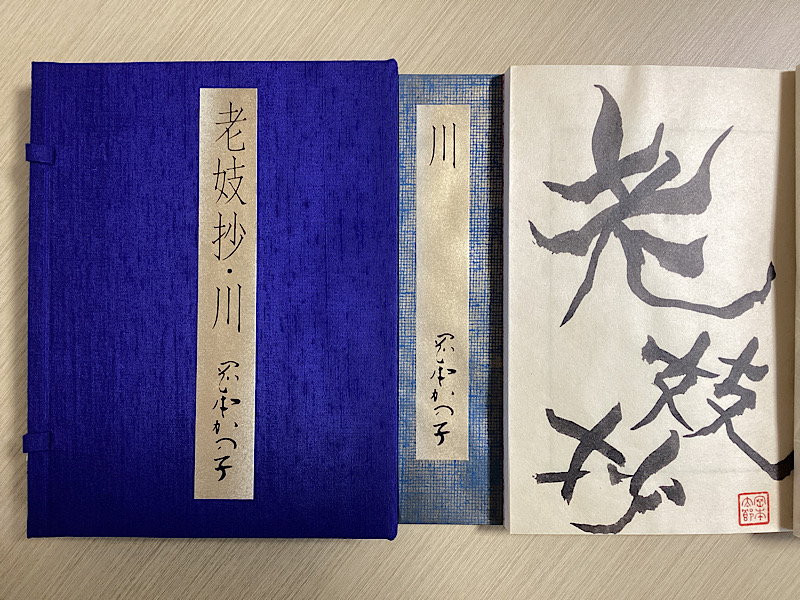 老妓抄・川
岡本かの子
川
岡本かの子
老
妓
抄
岡本
太郎